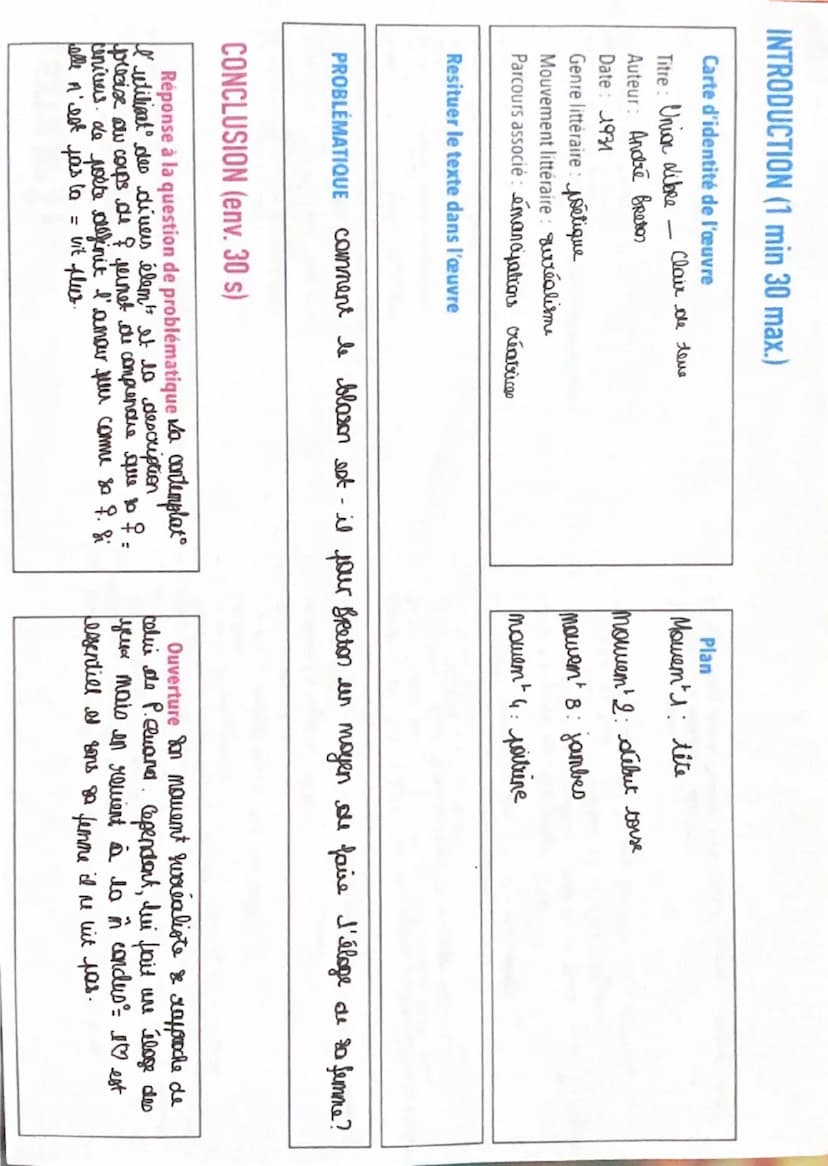 INTRODUCTION (1 min 30 max.)
Carte d'identité de l'œuvre
Titre : Union libre – Clair de terre
Auteur : André Breton
Date : 1931
Genre littéraire : poétique
Mouvement littéraire : surréalisme
Parcours associé : émancipations créatrices
Plan
Mouvemt 1 : tête
mouvemt 2 : début torse
mouvemt 3 : jambes
mouvemt 4 : poitrine
Resituer le texte dans l'œuvre
PROBLÉMATIQUE comment le blason est-il pour Breton un moyen de faire l'éloge de sa femme?
CONCLUSION (env. 30 s)
Réponse à la question de problématique La contemplat°
l'utilisat° des divers élemts et la description
precise du corps de ♀ permet de comprendre que sa ♀ =
univers. Le poète définit l'amour pur comme sa ♀. Si
elle n'est pas la = vit plus.
Ouverture Son mouvemt surréaliste se rapproche de
celui de P. Eluard. Cependant, lui fait une éloge des
yeux mais en revient à la m̂ conclus° = l'♡ est
essentiel et sans sa femme il ne vit pas.